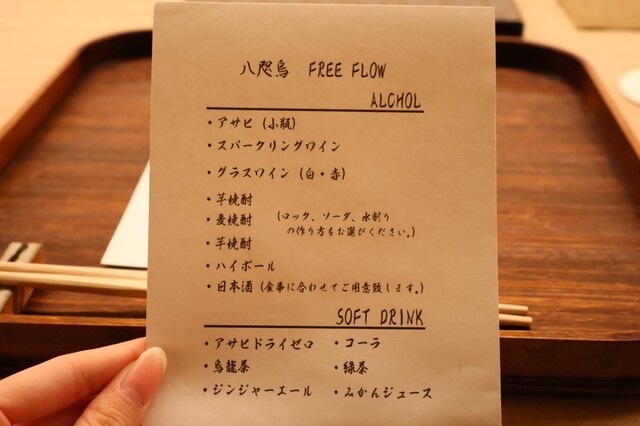 八咫烏 FREE FLOW
ALCHOL
・アサヒ（小瓶）
・スパークリングワイン
・グラスワイン（白・赤）
・芋焼酎
・麦焼酎 （ロック、ソーダ、水割り
・芋焼酎 の作り方をお選びください。）
・ハイボール
・日本酒（食事に合わせてご用意致します。）
SOFT DRINK
・アサヒドライゼロ ・コーラ
・烏龍茶 ・緑茶
・ジンジャーエール ・みかんジュース